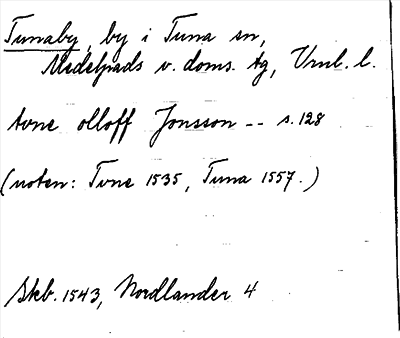 Tunaby, by i Tuna sn,
Medelpads v. doms. tg, Vnl. l.
tvne olloff Jonsson -- s. 128
(noten: Tvne 1535, Tuna 1557.)
Skb. 1543, Nordlander 4